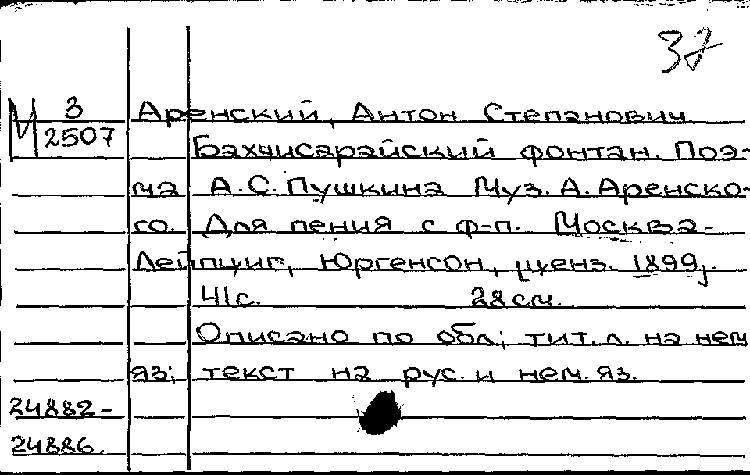 37
М 3 Аренский, Антон Степанович
2507 Бахчисарайский фонтан. Поэ-
ма А.С. Пушкина Муз. А. Аренско-
го. Для пения с ф-п. Москва-
Лейпциг, Юргенсон, ценз. 1899.
41с. 28см.
Описано по обл; тит. л. на нем
яз; текст на рус. и нем. яз.
24882-
24886.